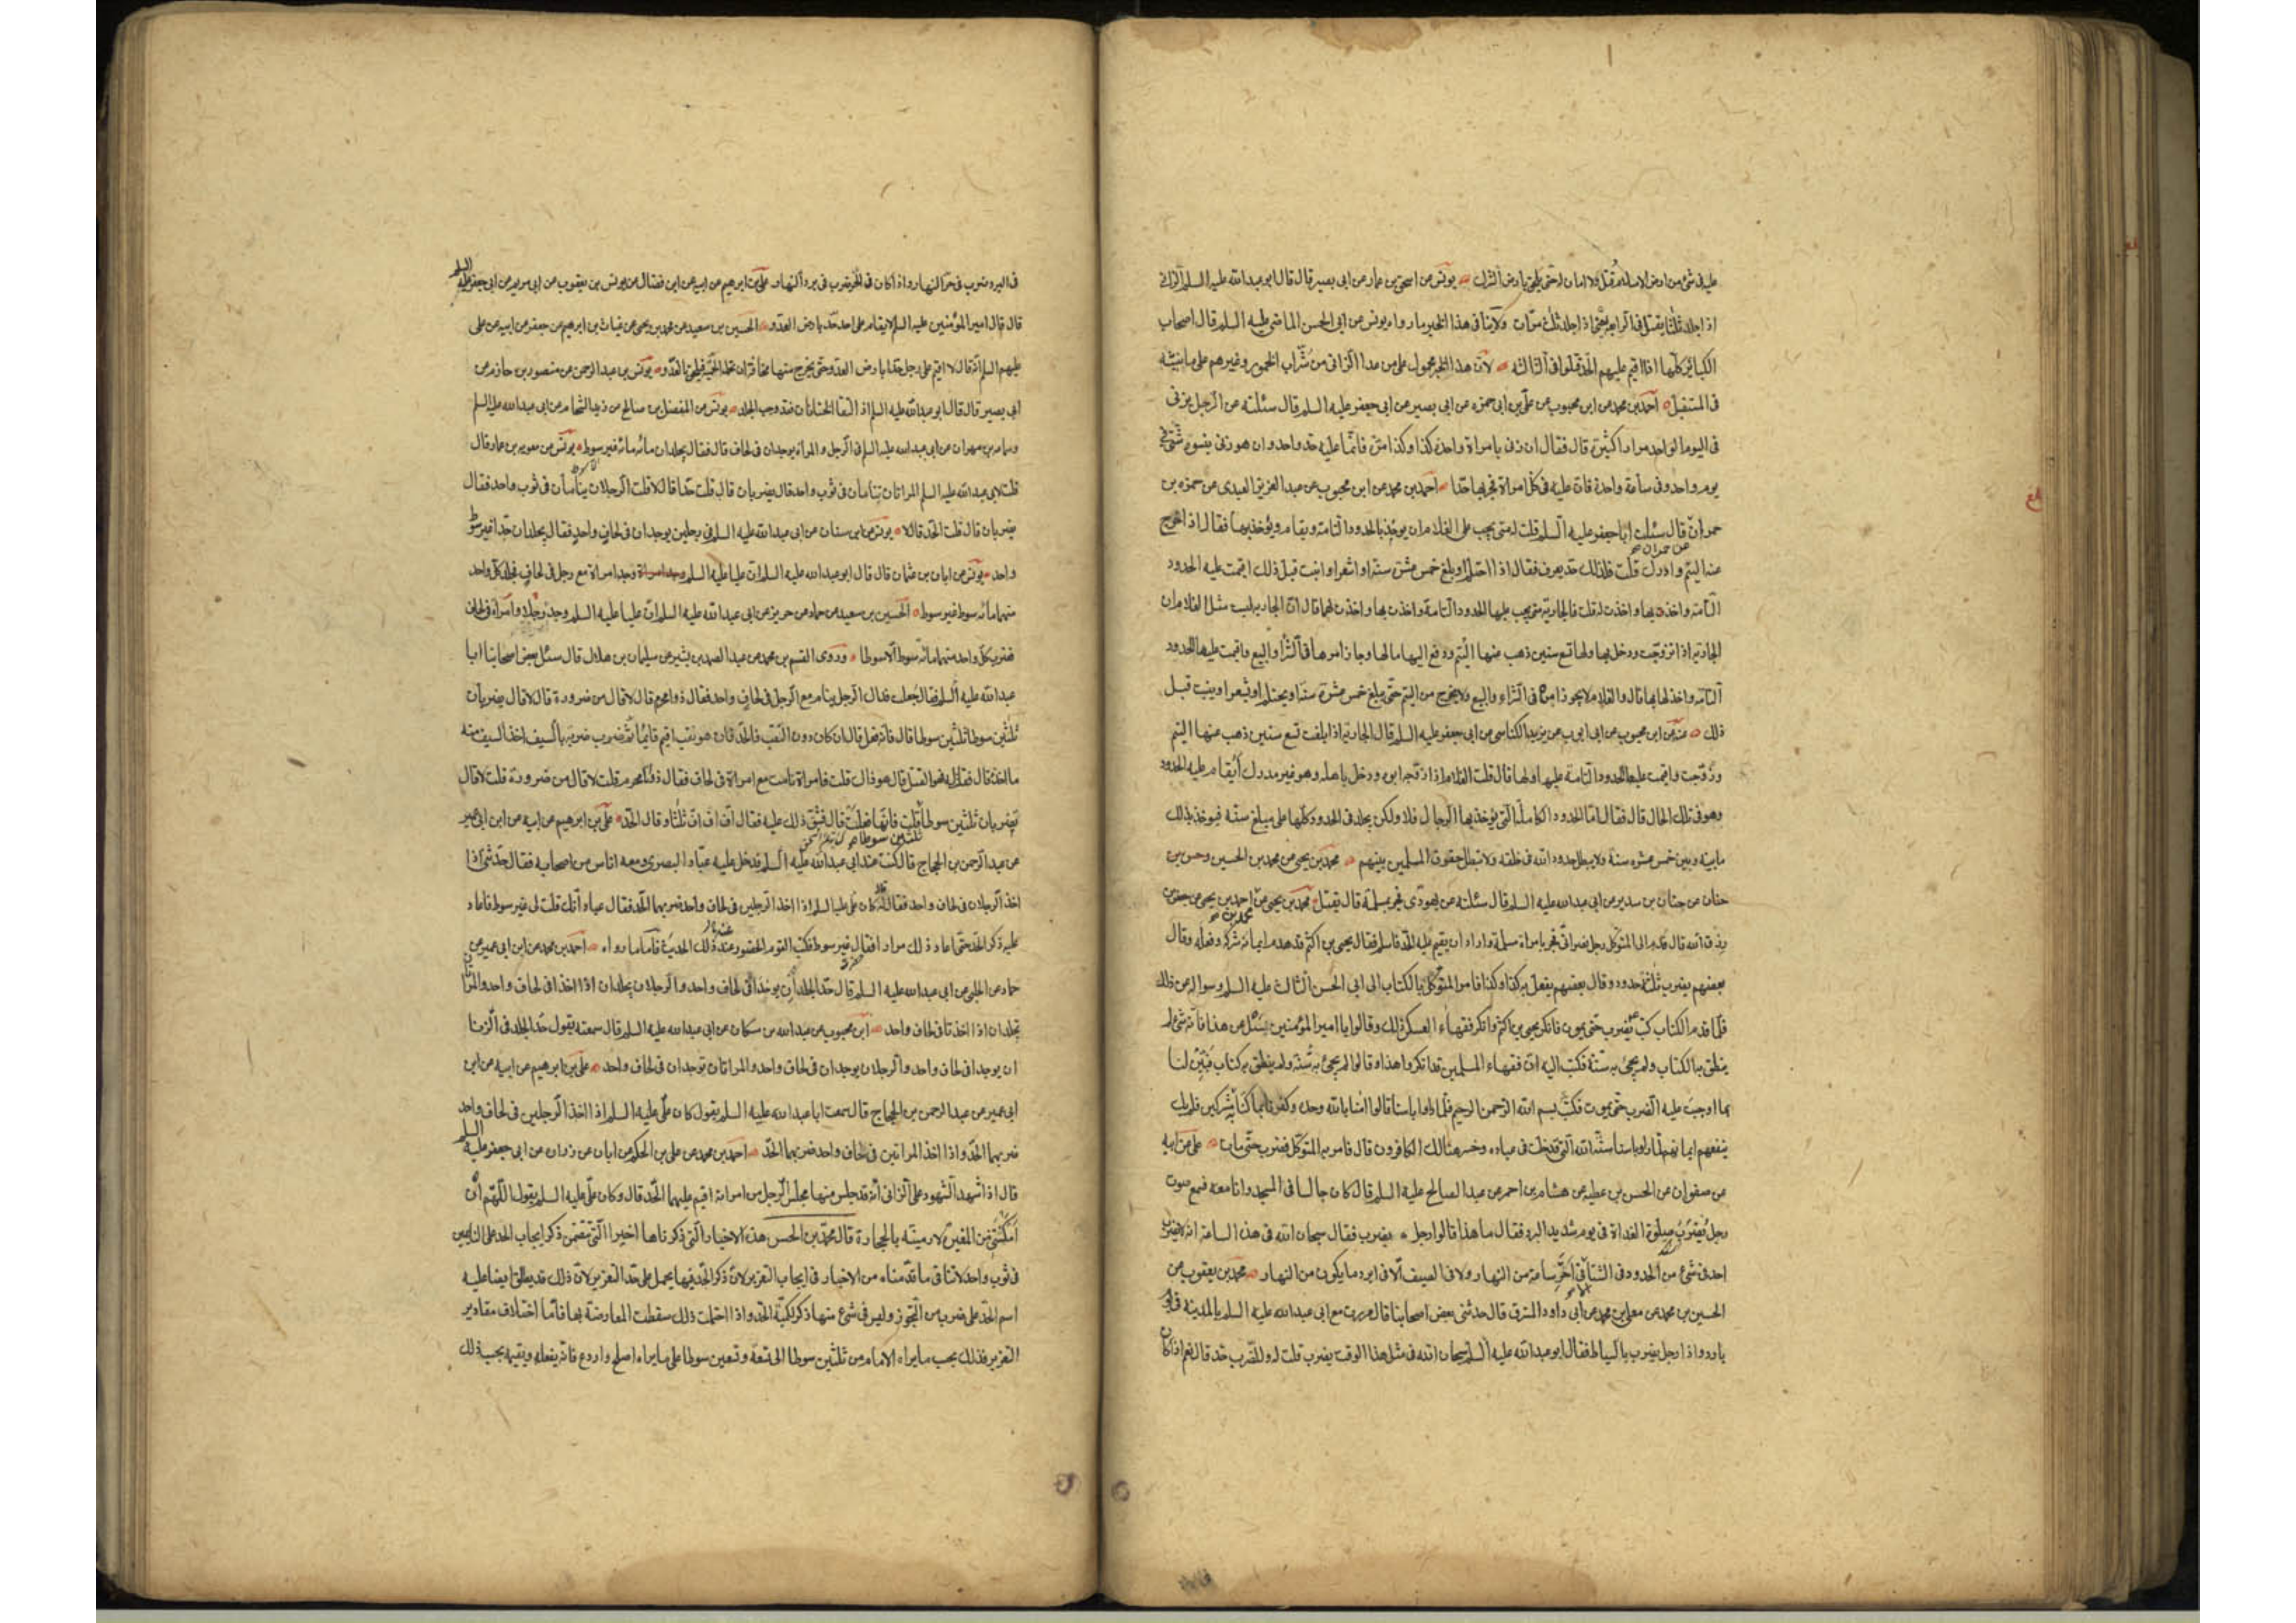 عليه في شئ من ارض الاسلام قتل ولا امان له حتى يلحق بارض الشرك يونس عن اسحق بن عمار عن ابى بصير قال قال ابو عبدالله عليه السلم الزاني
اذا جلد ثلثا يقتل في الرابعة يعني اذا جلد ثلث مرّات ولا ينافى هذا الخبر ما رواه يونس عن ابى الحسن الماضي عليه السلم قال اصحاب
الكبائر كلّها اذا اقيم عليهم الحدّ قتلوا في الثالثة لانّ هذا الخبر محمول على من عدا الزانى من شرّاب الخمور وغيرهم على ما نبيّنه
فى المستقبل احمد بن محمد عن ابن محبوب عن علىّ بن ابى حمزه عن ابى بصير عن ابى جعفر عليه السلم قال سئلته عن الرجل يزنى
فى اليوم الواحد مرارا كثيرة قال فقال ان زنى بامراة واحدة كذا وكذا مرّة فانّما عليه حد واحد وان هو زنى بنسوة شتّى في
يوم واحد وفى ساعة واحدة فانّ عليه في كلّ امراة فجر بها حدّا احمد بن محمد عن ابن محبوب عن عبد العزيز العبدى عن حمزه بن
حمران عن حمران قال سئلت ابا جعفر عليه السلم قلت له متى يجب على الغلام ان يوخذ بالحدود التامة ويقام ويؤخذ بها فقال اذا خرج
عنه اليتم وادرك قلت فلذلك حد يعرف فقال اذا احتلم او بلغ خمس عشرة سنة او اشعر او انبت قبل ذلك اقيمت عليه الحدود
التّامّة واخذ بها واخذت له قلت فالجارية متى يجب عليها الحدود التامة واخذت بها واخذت لها قال انّ الجارية ليست مثل الغلام ان
الجارية اذا تزوّجت ودخل بها ولها تسع سنين ذهب عنها اليتم ودفع اليها مالها وجاز امرها في الشراء والبيع واقيمت عليها الحدود
التامّة واخذ لها بها قال والغلام لا يجوز امره في الشراء والبيع ولا يخرج من اليتم حتّى يبلغ خمس عشرة سنة او يحتلم او يشعر او ينبت قبل
ذلك عنه عن ابن محبوب عن ابى ايوب عن يزيد الكناسى عن ابى جعفر عليه السلم قال الجارية اذا بلغت تسع سنين ذهب عنها اليتم
وزوّجت واقيمت عليها الحدود التامة عليها ولها قال قلت الغلام اذا زوّجه ابوه ودخل باهله وهو غير مدرك أيقام عليه الحدود
وهو في تلك الحال قال فقال امّا الحدود الكاملة التى يؤخذ بها الرجال فلا ولكن يجلد فى الحدود كلّها على مبلغ سنّه فيوخذ بذلك
ما بينه وبين خمس عشره سنة ولا يبطل حدود الله فى خلقه ولا تبطل حقوق المسلمين بينهم محمد بن يحيى عن محمد بن الحسين وعن بن
حنان عن حنان بن سدير عن ابى عبدالله عليه السلم قال سئلته عن يهودى فجر بمسلمة قال يقتل محمد بن يحيى عن محمد بن احمد بن يحيى عن جعفر بن
رزق الله قال قدم الى المتوكّل رجل نصرانى فجر بامراة مسلمة واراد ان يقيم عليه الحدّ فاسلم فقال يحيى بن اكثم قد هدم ايمانه شركه وفعله وقال
بعضهم يضرب ثلثة حدود وقال بعضهم يفعل به كذا وكذا فامر المتوكّل بالكتاب الى ابى الحسن الثالث عليه السلم وسواله عن ذلك
فلمّا قدم الكتاب كتب يضرب حتى يموت فانكر يحيى بن اكثم وانكر فقهاء العسكر ذلك وقالوا يا امير المؤمنين نسئل عن هذا فانّه شئ لم
ينطق به الكتاب ولم يجئ به سنّة فكتب اليه انّ فقهاء المسلمين قد انكروا هذا وقالوا لم يجئ به سنّة ولم ينطق به كتاب فبيّن لنا
بما اوجبت عليه الضرب حتى يموت فكتب بسم الله الرحمن الرحيم فلمّا راوا باسنا قالوا امنّا بالله وحده وكفرنا بما كنّا به مشركين فلم يك
ينفعهم ايمانهم لمّا راوا باسنا سنّة الله التى قد خلت فى عباده وخسر هنالك الكافرون قال فامر به المتوكّل فضرب حتّى مات على عن ابيه
عن صفوان عن الحسن بن عطيه عن هشام بن احمر عن عبد الصالح عليه السلم قال كان جالسا فى المسجد وانا معه فسمع صوت
رجل يضرب صلوة الغداة في يوم شديد البرد فقال ما هذا قالوا رجل يضرب فقال سبحان الله فى هذه الساعة انه لا يضرب
احد فى شئ من الحدود فى الشتاء الا فى آخر ساعة من النهار ولا فى الصيف الّا فى ابرد ما يكون من النهار محمد بن يعقوب عن
الحسين بن محمد عن معلى بن محمد عن ابى داود المسترق قال حدثنى بعض اصحابنا قال مررت مع ابى عبدالله عليه السلم بالمدينة فى يوم
بارد واذا رجل يضرب بالسياط فقال ابو عبدالله عليه السلم سبحان الله فى مثل هذا الوقت يضرب قلت له وللضرب حد قال نعم اذا كان
فى البرد ضرب فى حرّ النهار واذا كان فى الحر ضرب فى برد النهار علىّ بن ابرهيم عن ابيه عن ابن فضال عن يونس بن يعقوب عن ابى مريم عن ابى جعفر عليه السلم
قال قال امير المؤمنين عليه السلم لا يقام على احد حدّ بارض العدّو الحسين بن سعيد عن محمد بن يحيى عن غياث بن ابرهيم عن جعفر عن ابيه عن على
عليهم السلم انّه قال لا اقيم على رجل حدّا بارض العدو حتّى يخرج منها مخافة ان تحمله الحميّة فيلحق بالعدّو يونس بن عبد الرحمن عن منصور بن حازم عن
ابى بصير قال قال ابو عبدالله عليه السلم اذا التقا الختانان فقد وجب الجلد يونس عن المفضل بن صالح عن زيد الشحام عن ابى عبدالله عليه السلم
وسماعه بن مهران عن ابى عبدالله عليه السلم فى الرجل والمرأة يوجدان فى لحاف قال فقال يجلدان مائه مائه غير سوط يونس عن معويه بن عمار قال
قلت لابى عبدالله عليه السلم المراتان تنامان فى ثوب واحد قال يضربان قال قلت حدّا قال لا قلت الرجلان ينامان فى ثوب واحد فقال
يضربان قال قلت الحدّ قال لا يونس عن ابن سنان عن ابى عبدالله عليه السلم فى رجلين يوجدان فى لحاف واحد فقال يجلدان حدّا غير سوط
واحد يونس عن ابان بن عثمان قال قال ابو عبدالله عليه السلم ان عليا عليه السلم وجد امراة مع رجل فى لحاف فجلد كلّ واحد
منهما مائه سوط غير سوط الحسين بن سعيد عن حماد عن حريز عن ابى عبدالله عليه السلم انّ عليا عليه السلم وجد رجلا وامراة فى لحاف
فضرب كلّ واحد منهما مائه سوط الّا سوطا وروى القسم بن محمد عن عبد الصمد بن بشير عن سليمان بن هلال قال سئل بعض اصحابنا ابا
عبدالله عليه السلم فقال جعلت فداك الرجل ينام مع الرجل فى لحاف واحد فقال ذوا محرم قال لا قال من ضرورة قال لا قال يضربان
ثلثين سوطا ثلثين سوطا قال فانه فعل قال ان كان دون الثقب فالحدّ فان هو ثقب اقيم قائما ثم ضرب ضربة بالسيف اخذ السيف منه
ما اخذ قال فقلت له فهو القتل قال هو ذاك قلت فامراة نامت مع امراة فى لحاف فقال ذواتا محرم قلت لا قال من ضرورة قلت لا قال
تضربان ثلثين سوطا ثلثين سوطا قلت فانها فعلت قال فشقّ ذلك عليه فقال اف اف اف ثلثا وقال الحدّ علىّ بن ابرهيم عن ابيه عن ابن ابى عمير
عن عبد الرحمن بن الحجاج قال كنت عند ابى عبدالله عليه السلم فدخل عليه عبّاد البصرى ومعه اناس من اصحابه فقال حدّثنى اذا
اخذ الرجلان فى لحاف واحد فقال له كان علىّ عليه السلم اذا اخذ الرجلين فى لحاف واحد ضربهما الحدّ فقال عباد انّك قلت لى غير سوط فاعاد
عليه ذكر الحدّ حتّى اعاد ذلك مرارا فقال غير سوط فكتب القوم الحضور عند ذلك الحديث فامّا ما رواه احمد بن محمد عن ابن ابى عمير عن
حماد عن الحلبى عن ابى عبدالله عليه السلم قال حدّ الجلد أن يوخذا فى لحاف واحد والرجلان يجلدان اذا اخذا فى لحاف واحد والمراتان
تجلدان اذا اخذتا فى لحاف واحد ابن محبوب عن عبدالله بن سكان عن ابى عبدالله عليه السلم قال سمعته يقول حدّ الجلد فى الزنا
ان يوجدا فى لحاف واحد والرجلان يوجدان فى لحاف واحد والمراتان توجدان فى لحاف واحد علىّ بن ابرهيم عن ابيه عن ابن
ابى عمير عن عبد الرحمن بن الحجاج قال سمعت ابا عبدالله عليه السلم يقول كان علىّ عليه السلم اذا اخذ الرجلين فى لحاف واحد
ضربهما الحدّ واذا اخذ المراتين فى لحاف واحد ضربهما الحدّ احمد بن محمد عن على بن الحكم عن ابان عن زراره عن ابى جعفر عليه السلم
قال اذا شهد الشهود على الزانى انّه قد جلس منها مجلس الرجل من امراته اقيم عليهما الحّد قال وكان علىّ عليه السلم يقول اللّهمّ أن
امكنتنى من المغيرة لارمينّه بالحجارة قال محمّد بن الحسن هذه الاخبار الّتى ذكرناها اخيرا الّتى تتضمّن ذكر ايجاب الحد على
فى ثوب واحد لا تنافى ما قدّمناه من الاخبار فى ايجاب التعزير لانّ ذكر الحدّ فيها يحمل على حدّ التعزير لانّ ذلك قد يطلق ايضا عليه
اسم الحدّ على ضرب من التجّوز وليس فى شئ منها ذكر لكميّة الحدّ واذا احتملت ذلك سقطت المعارضة بها فامّا اختلاف مقادير
التعزير فذلك يجب ما يراه الامام من ثلثين سوطا الى تسعة وتسعين سوطا على ما يراه اصلح واردع فانّه يفعله ويقيمه يجب ذلك